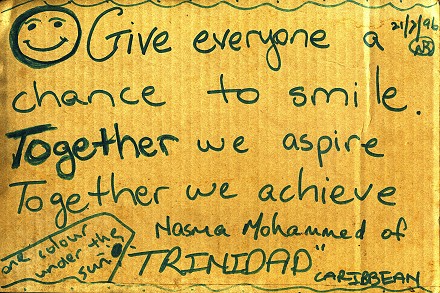 Give everyone a
21/2/96
NB
chance to smile.
Together we aspire
Together we achieve
Nasma Mohammed of
TRINIDAD"
CARIBBEAN
one colour
under the
sun.